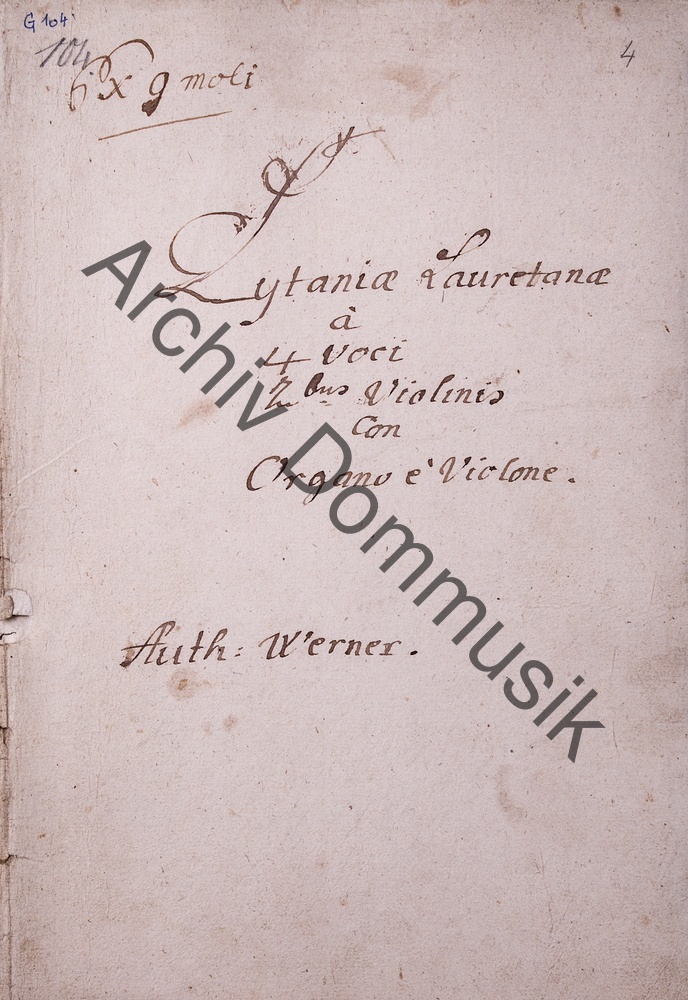 G 104
104
4
ex g moli
Lytaniæ Lauretanæ
à
4 Voci
2bus Violinis
Con
Organo è Violone.
Auth: Werner.
Archiv Dommusik